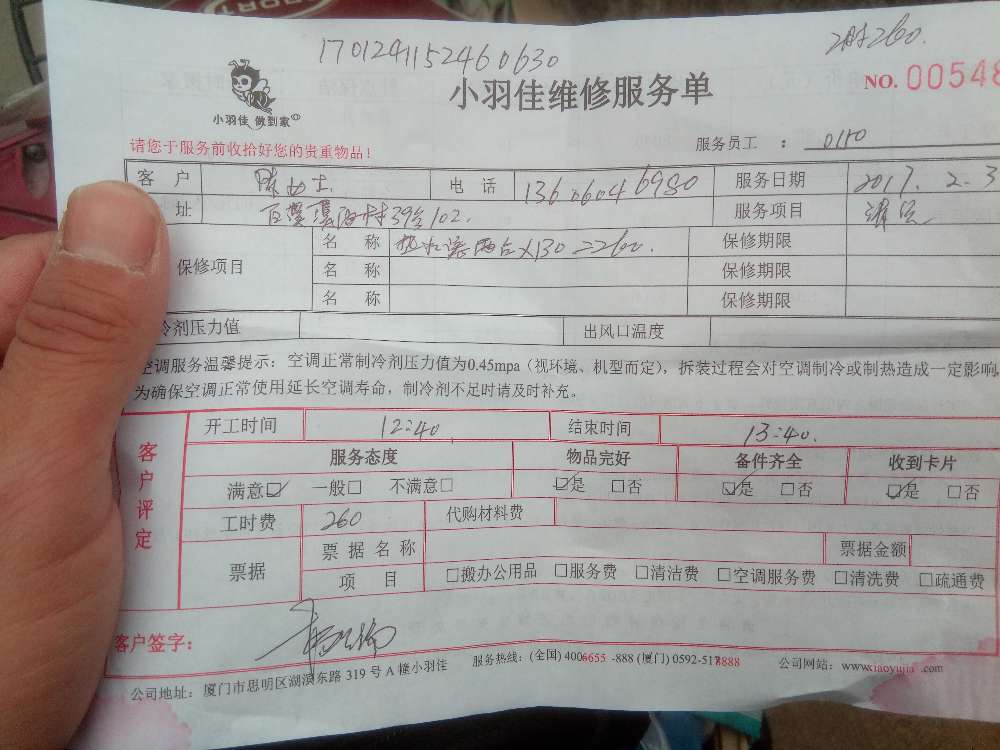 1701241152460630
260.
小羽佳 做到家
小羽佳维修服务单
NO. 00548
请您于服务前收拾好您的贵重物品！
服务员工 ： 0110
客 户 陈女士 电 话 13606046980 服务日期 2017.2.3
址 102. 服务项目 清洗
保修项目
名 称 热水器两台X130=260. 保修期限
名 称 保修期限
名 称 保修期限
冷剂压力值 出风口温度
空调服务温馨提示：空调正常制冷剂压力值为0.45mpa（视环境、机型而定），拆装过程会对空调制冷或制热造成一定影响
为确保空调正常使用延长空调寿命，制冷剂不足时请及时补充。
客户评定
开工时间 12:40 结束时间 13:40.
服务态度 物品完好 备件齐全 收到卡片
满意☑ 一般□ 不满意□ ☑是 □否 ☑是 □否 ☑是 □否
工时费 260 代购材料费
票据 票 据 名 称 票据金额
项 目 □搬办公用品 □服务费 □清洁费 □空调服务费 □清洗费 □疏通费
客户签字：
公司地址：厦门市思明区湖滨东路 319 号 A 幢小羽佳 服务热线：(全国) 4006655 -888 (厦门) 0592-5178888 公司网站：www.xiaoyujia .com